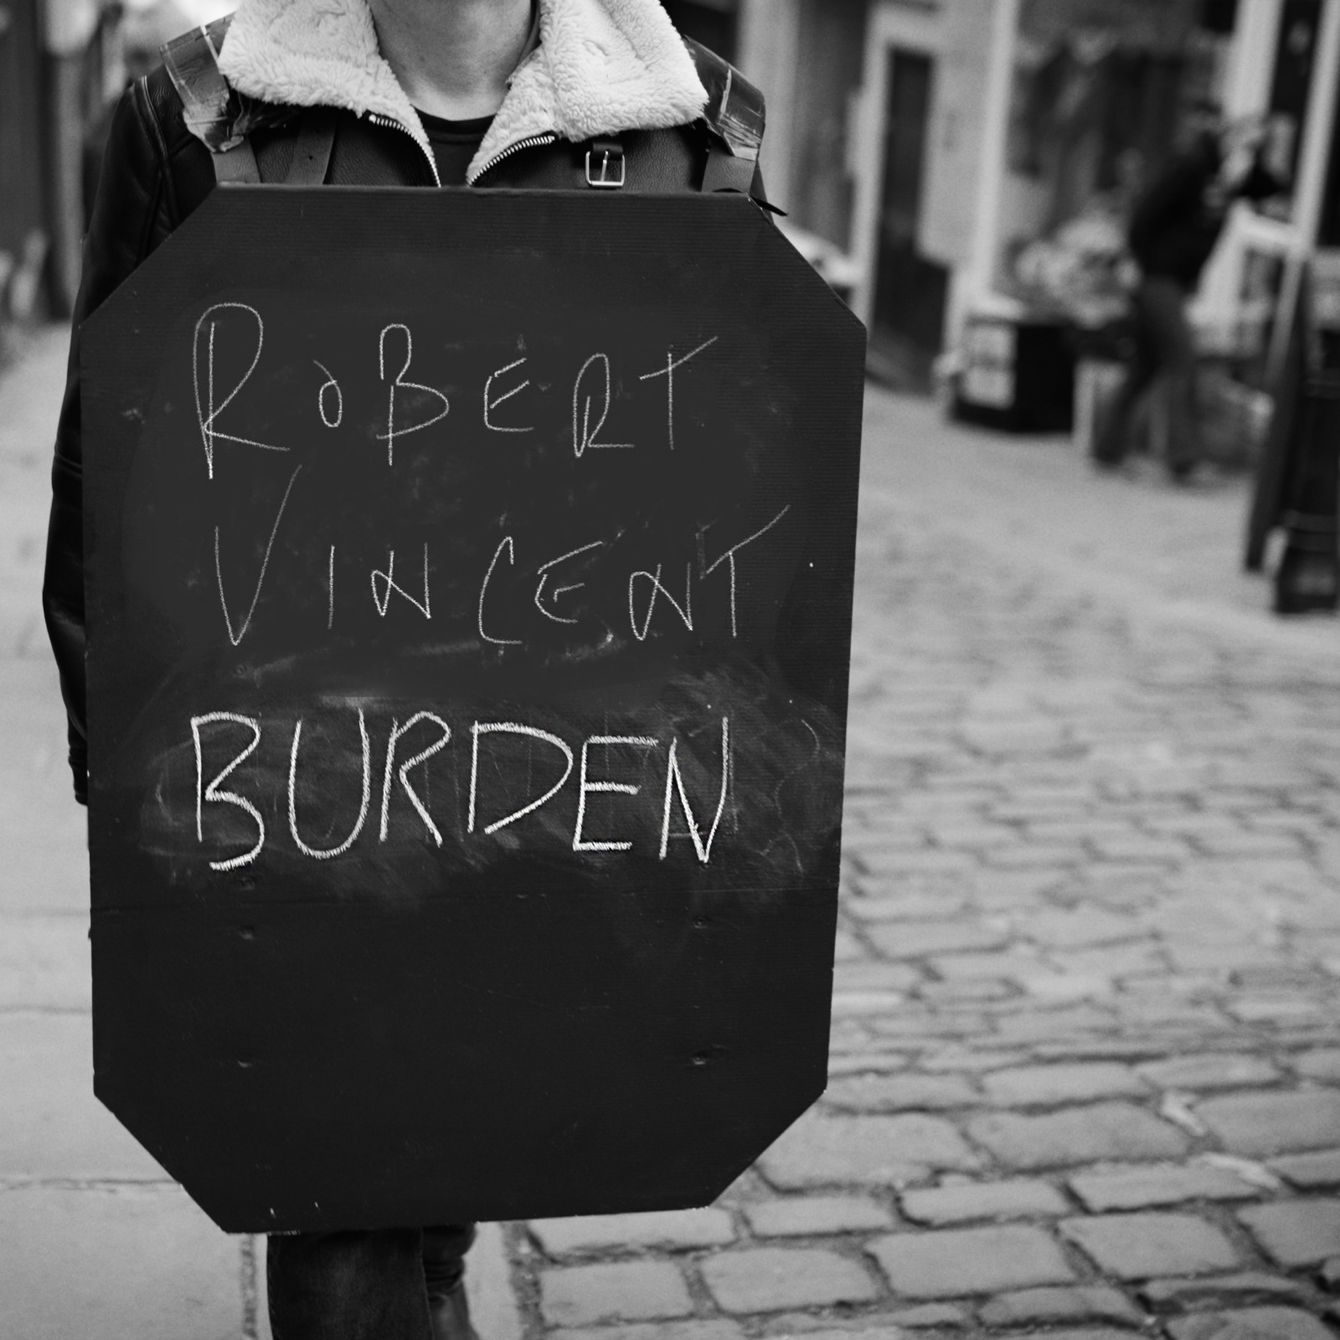 ROBERT
VINCENT
BURDEN